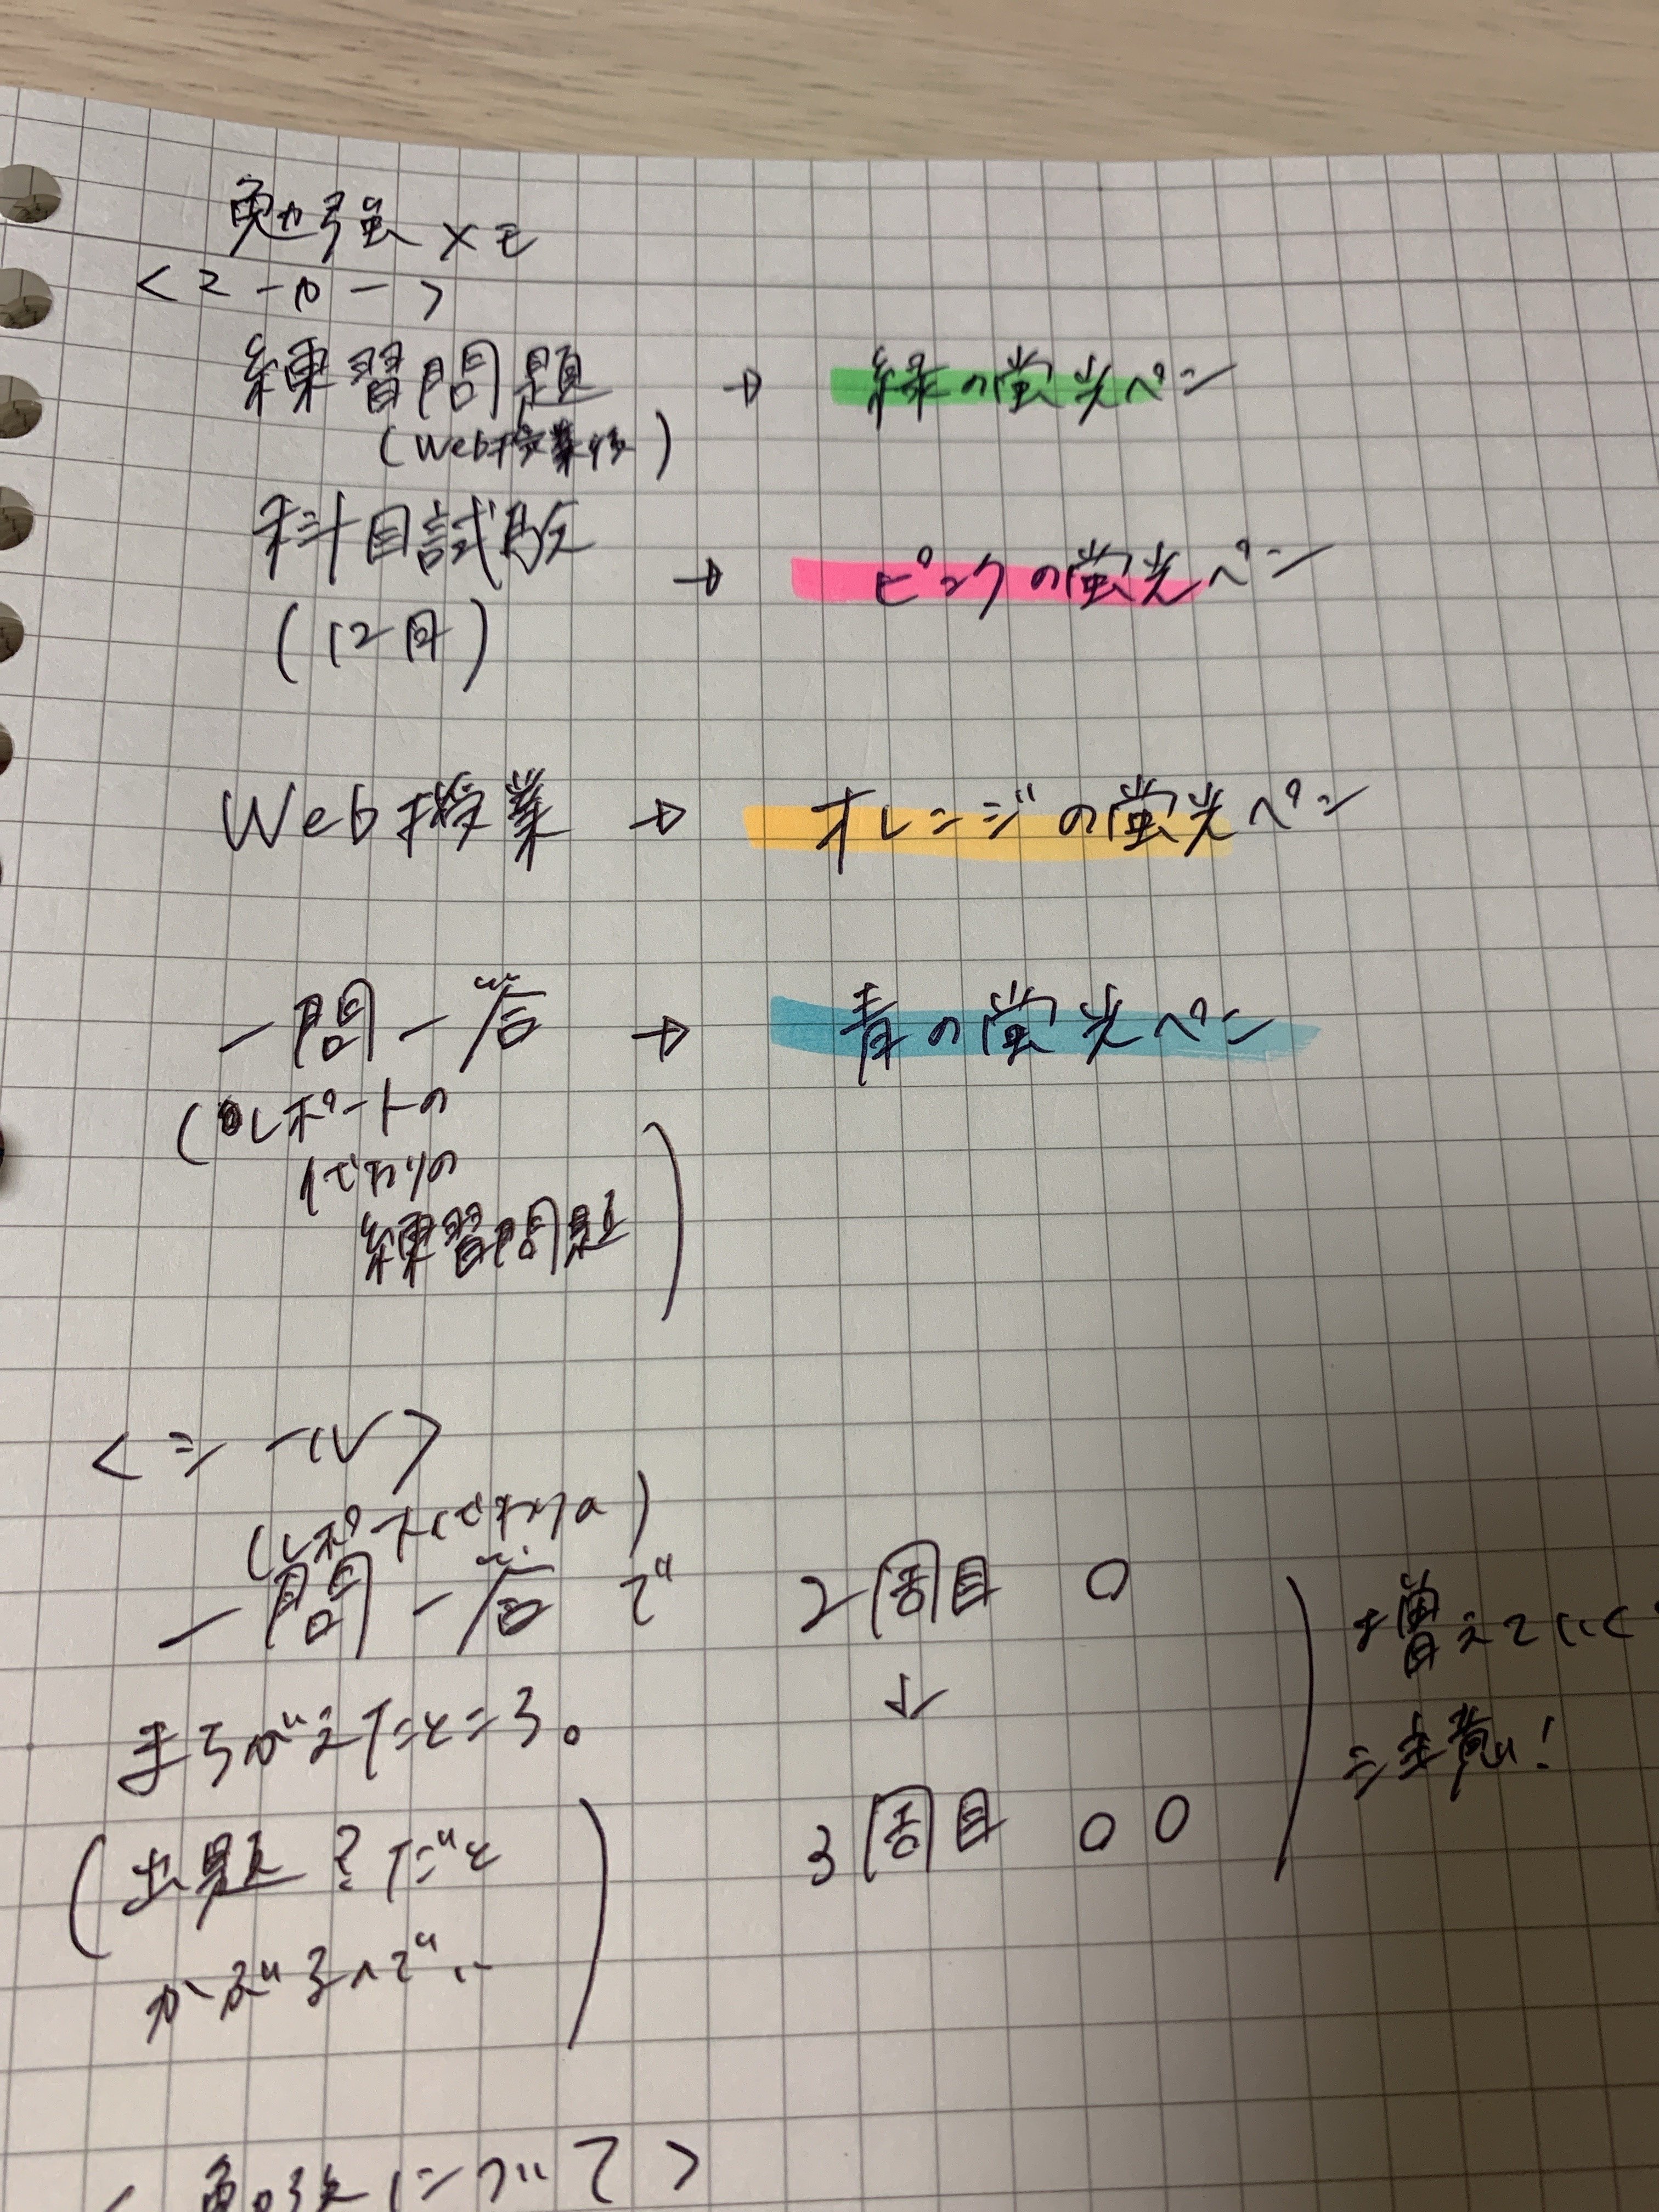 勉強メモ
<マーカー>
練習問題 → 緑の蛍光ペン
(Web授業後)
科目試験 → ピンクの蛍光ペン
(12月)
Web授業 → オレンジの蛍光ペン
一問一答 → 青の蛍光ペン
(レポートの
代わりの
練習問題)
<シール>
(レポート代わりの)
一問一答で
まちがえたところ。
(出題
2周目 ○
↓
3周目 ○○
増えていく
注意!
勉強について>